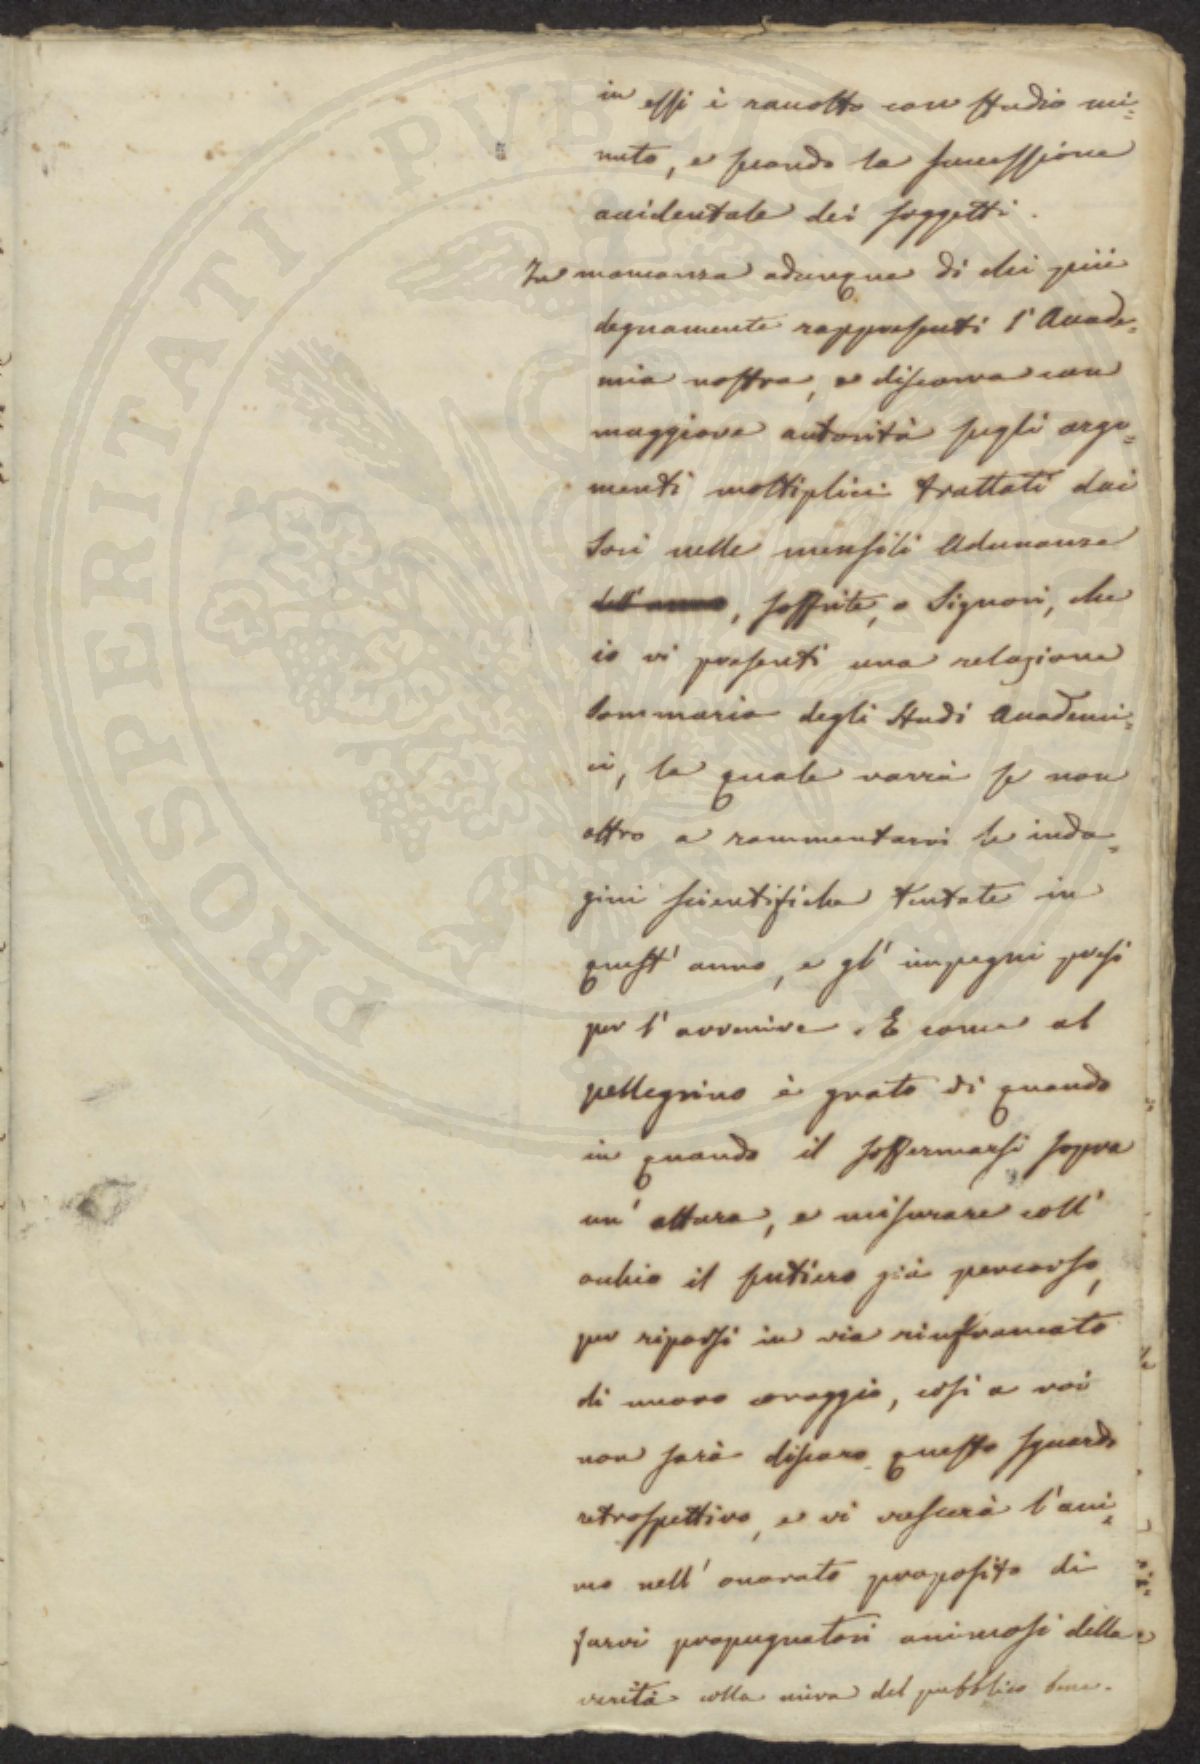 in essi è raccolto con studio mi=
nuto, e secondo la successione
accidentale dei soggetti.
In mancanza adunque di chi più
degnamente rappresenti l'Accade=
mia nostra, e discorra con
maggiore autorità sugli argo=
menti moltiplici trattati dai
Soci nelle mensili Adunanze
dell'anno, soffrite, o Signori, che
io vi presenti una relazione
sommaria degli studi Accademi=
ci, la quale varrà se non
altro a rammentarvi le inda=
gini scientifiche tentate in
quest'anno, e gl'impegni presi
per l'avvenire. E come al
pellegrino è grato di quando
in quando il soffermarsi sopra
un'altura, e misurare coll'
occhio il sentiero già percorso,
per riporsi in via rinfrancato
di nuovo coraggio, così a voi
non sarà discaro questo sguardo
retrospettivo, e vi crescerà l'ani=
mo nell'onorato proposito di
farvi propugnatori animosi della
verità colla mira del pubblico bene.
PROSPERITATI PUBLICAE